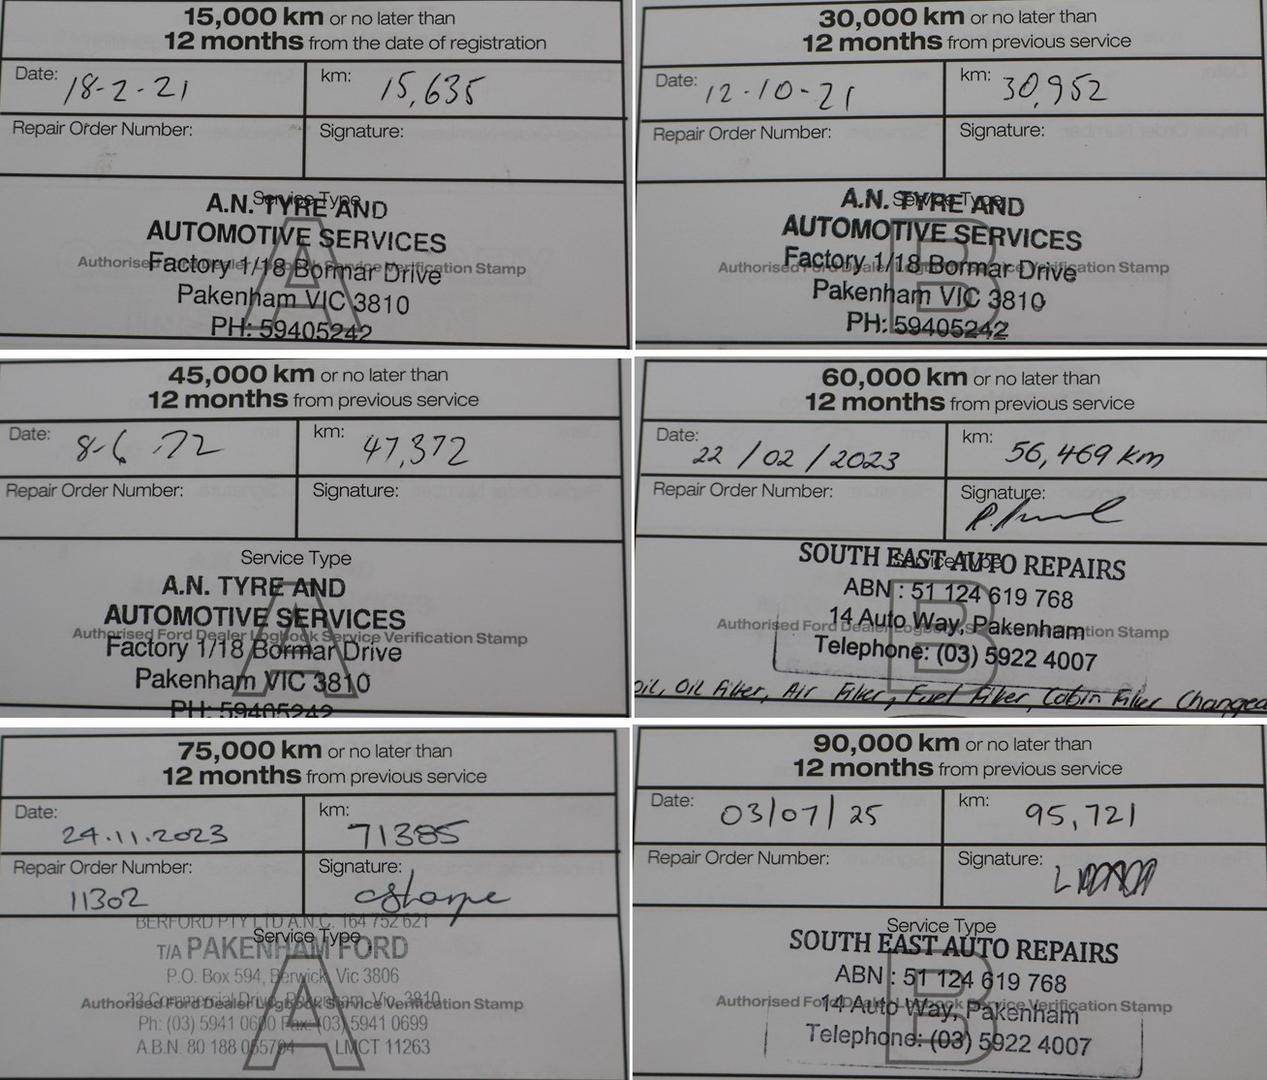 15,000 km or no later than
12 months from the date of registration
Date: 18-2-21
km: 15,635
Repair Order Number:
Signature:
Service Type
A.N. TYRE AND
AUTOMOTIVE SERVICES
Authorised Ford Dealer Logbook Service Verification Stamp
Factory 1/18 Bormar Drive
A
Pakenham VIC 3810
PH: 59405242
30,000 km or no later than
12 months from previous service
Date: 12-10-21
km: 30,952
Repair Order Number:
Signature:
Service Type
A.N. TYRE AND
AUTOMOTIVE SERVICES
Authorised Ford Dealer Logbook Service Verification Stamp
Factory 1/18 Bormar Drive
B
Pakenham VIC 3810
PH: 59405242
45,000 km or no later than
12 months from previous service
Date: 8-6-22
km: 47,372
Repair Order Number:
Signature:
Service Type
A.N. TYRE AND
AUTOMOTIVE SERVICES
Authorised Ford Dealer Logbook Service Verification Stamp
Factory 1/18 Bormar Drive
A
Pakenham VIC 3810
PH: 59405242
60,000 km or no later than
12 months from previous service
Date: 22/02/2023
km: 56,469 km
Repair Order Number:
Signature:
Service Type
SOUTH EAST AUTO REPAIRS
ABN : 51 124 619 768
14 Auto Way, Pakenham
Authorised Ford Dealer Logbook Service Verification Stamp
B
Telephone: (03) 5922 4007
oil, Oil Filter, Air Filter, Fuel Filter, Cabin Filter Changed
75,000 km or no later than
12 months from previous service
Date: 24.11.2023
km: 71385
Repair Order Number: 11302
Signature: CSharpe
BERFORD PTY LTD A.N.C. 164 752 621
Service Type
T/A PAKENHAM FORD
P.O. Box 594, Berwick, Vic 3806
Authorised Ford Dealer Logbook Service Verification Stamp
Commercial Drive, Pakenham, Vic. 3810
Ph: (03) 5941 0600 Fax: (03) 5941 0699
A
A.B.N. 80 188 055794 LMCT 11263
90,000 km or no later than
12 months from previous service
Date: 03/07/25
km: 95,721
Repair Order Number:
Signature:
Service Type
SOUTH EAST AUTO REPAIRS
ABN : 51 124 619 768
Authorised Ford Dealer Logbook Service Verification Stamp
14 Auto Way, Pakenham
B
Telephone: (03) 5922 4007